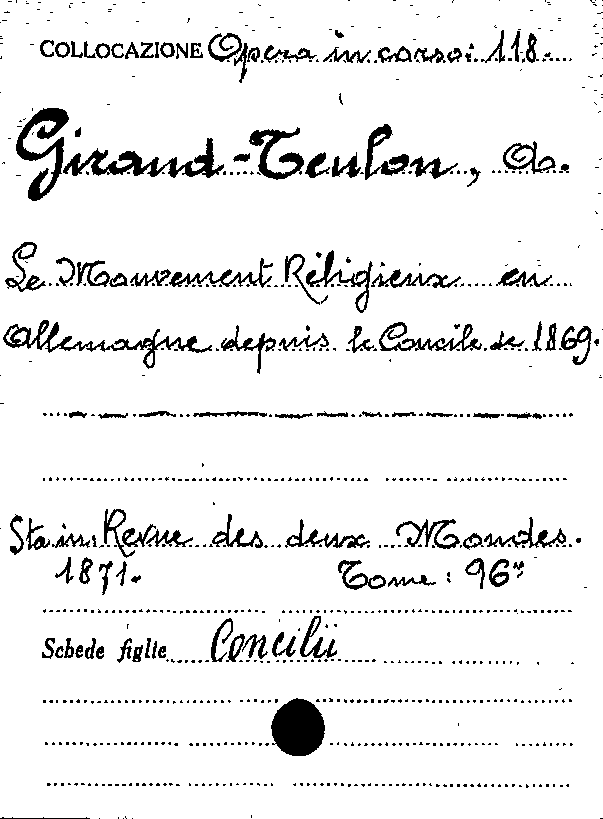 COLLOCAZIONE Opera in corso: 118.
Giraud-Teulon, A.
Le Mouvement Réligieux en
Allemagne depuis le Concile de 1869.
Sta in: Revue des deux Mondes.
1871. Tome: 96º
Schede figlie Concilii